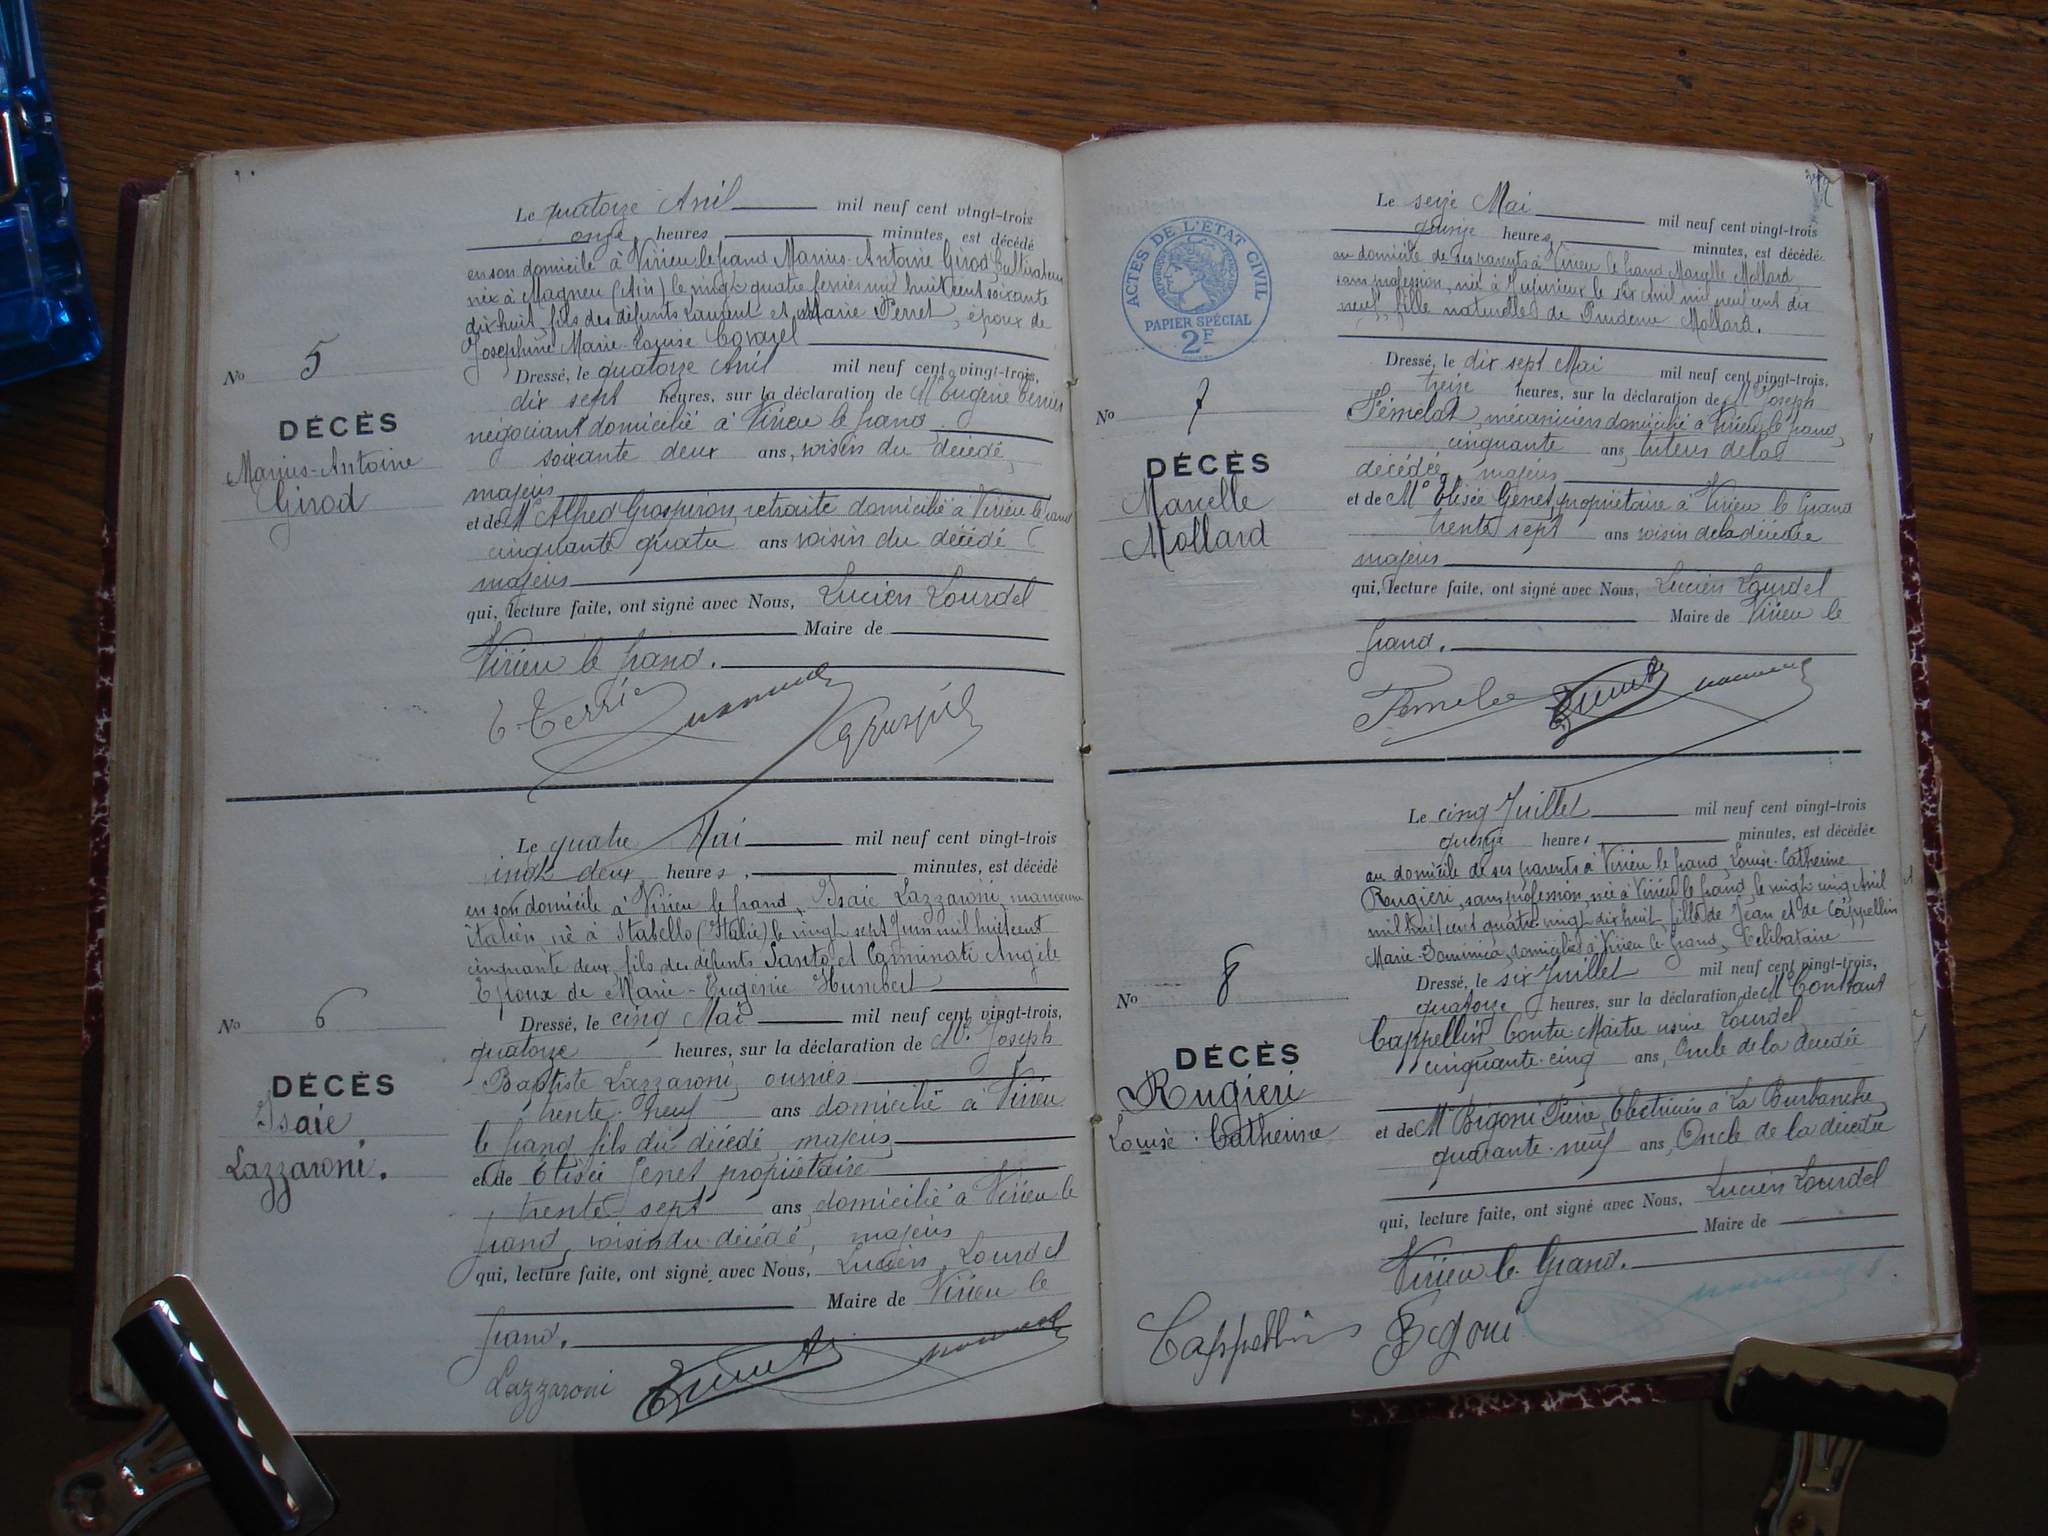 Le quatorze Avril mil neuf cent vingt-trois
onze heures minutes, est décédé
en son domicile à Virieu le grand Marius-Antoine Girod Cultivateur
né à Magnieu (Ain) le vingt quatre février mil huit cent soixante
dix huit, fils des défunts Laurent et Marie Perret, époux de
Joséphine Marie-Louise
Dressé, le quatorze Avril mil neuf cent vingt-trois,
dix sept heures, sur la déclaration de Mr Eugène Terrier
négociant domicilié à Virieu le grand
soixante deux ans, voisin du décédé,
majeurs
et de Mr Alfred Grospiron, retraité domicilié à Virieu le grand
cinquante quatre ans voisin du décédé
majeurs
qui, lecture faite, ont signé avec Nous, Lucien Lourdel
Maire de
Virieu le grand.
No 5
DÉCÈS
Marius-Antoine
Girod
Le quatre Mai mil neuf cent vingt-trois
vingt deux heures, minutes, est décédé
en son domicile à Virieu le grand, Isaïe Lazzaroni, manoeuvre
italien, né à Stabello (Italie) le vingt sept Juin mil huit cent
cinquante deux, fils des défunts Santo et Carminati Angèle
Epoux de Marie-Eugénie Humbert
Dressé, le cinq Mai mil neuf cent vingt-trois,
quatorze heures, sur la déclaration de Mr. Joseph
Baptiste Lazzaroni, ouvrier
trente-neuf ans domicilié à Virieu
le grand fils du décédé, majeurs
et de Elisée Genet propriétaire
trente sept ans domicilié à Virieu le
grand, voisin du décédé, majeurs
qui, lecture faite, ont signé avec Nous, Lucien Lourdel
Maire de Virieu le
grand.
Lazzaroni
No 6
DÉCÈS
Isaïe
Lazzaroni.
ACTES DE L'ÉTAT CIVIL
PAPIER SPÉCIAL
2F
Le seize Mai mil neuf cent vingt-trois
quinze heures, minutes, est décédée
au domicile de ses parents à Virieu le grand Marcelle Mollard
sans profession, née à Jujurieux le six Avril mil neuf cent dix
neuf, fille naturelle de Prudence Mollard.
Dressé, le dix sept Mai mil neuf cent vingt-trois,
treize heures, sur la déclaration de Mr Joseph
Fémelat, mécanicien domicilié à Virieu le grand,
cinquante ans, tuteur de la
décédée, majeurs
et de Mr Elisée Genet, propriétaire à Virieu le Grand
trente sept ans voisin de la décédée
majeurs
qui, lecture faite, ont signé avec Nous, Lucien Lourdel
Maire de Virieu le
grand.
No 7
DÉCÈS
Marcelle
Mollard
Le cinq Juillet mil neuf cent vingt-trois
quinze heures minutes, est décédée
au domicile de ses parents à Virieu le grand, Louise-Catherine
Rugieri, sans profession, née à Virieu le grand, le vingt cinq Avril
mil huit cent quatre vingt dix huit, fille de Jean et de Cappellin
Marie-Dominica, domiciliés à Virieu le grand, Célibataire
Dressé, le six Juillet mil neuf cent vingt-trois,
quatorze heures, sur la déclaration de Mr Constant
Cappellin Contre-Maître usine Lourdel
cinquante-cinq ans, Oncle de la décédée
et de Mr Bigoni Pierre, Electricien à La Burbanche
quarante-neuf ans, Oncle de la décédée
qui, lecture faite, ont signé avec Nous, Lucien Lourdel
Maire de
Virieu le Grand.
Cappellin Bigoni
No 8
DÉCÈS
Rugieri
Louise-Catherine